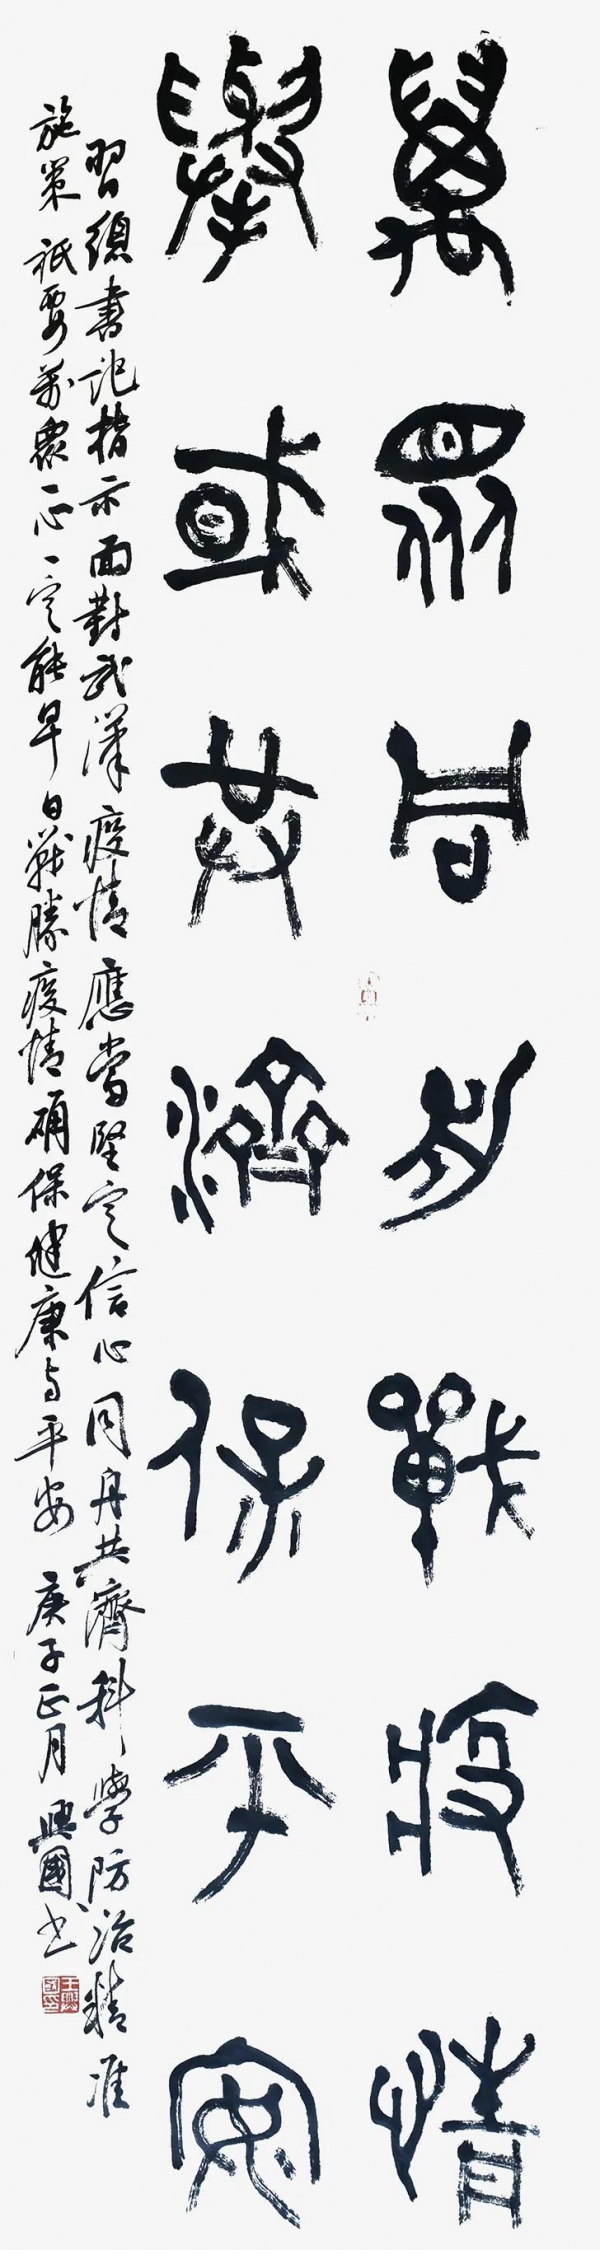 萬眾同力戰疫情
舉國共濟保平安
習總書記指示面對武漢疫情應當堅定信心同舟共濟科學防治精准
施策祇要萬眾一心一定能早日戰勝疫情确保健康与平安 庚子正月 興國书
王興國印